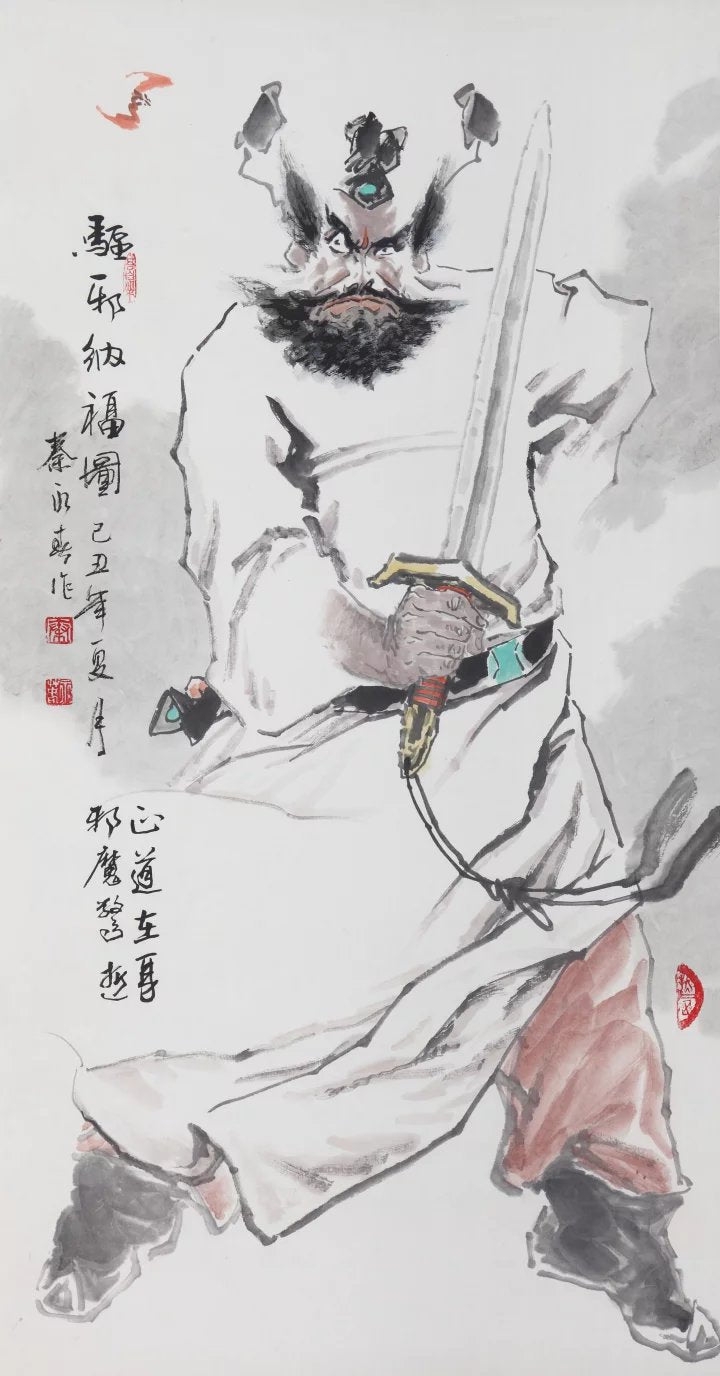 驅邪納福圖己丑年夏月
秦永春作
正道在
邪魔驚